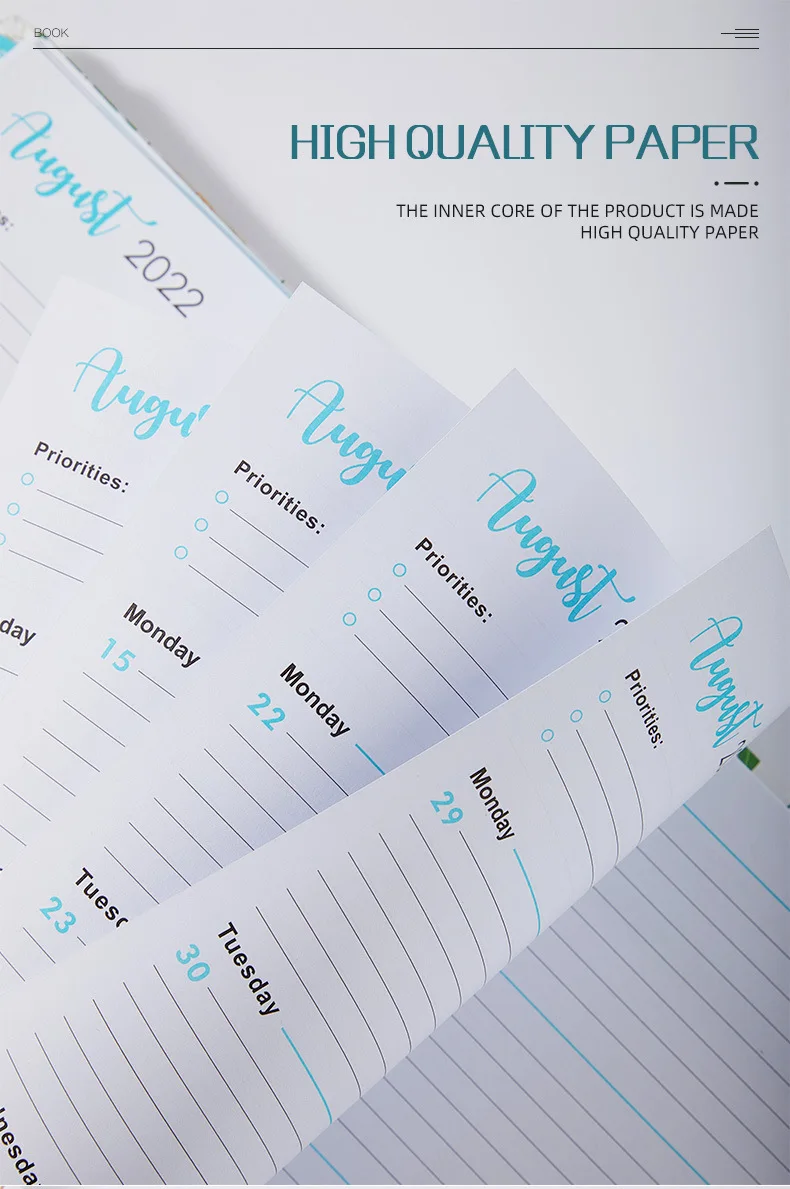 BOOK
HIGH QUALITY PAPER
THE INNER CORE OF THE PRODUCT IS MADE
HIGH QUALITY PAPER
August 2022
Priorities:
August
Priorities:
August
Priorities:
August
Priorities:
Monday
15
Monday
22
Monday
29
23
30
Tuesday